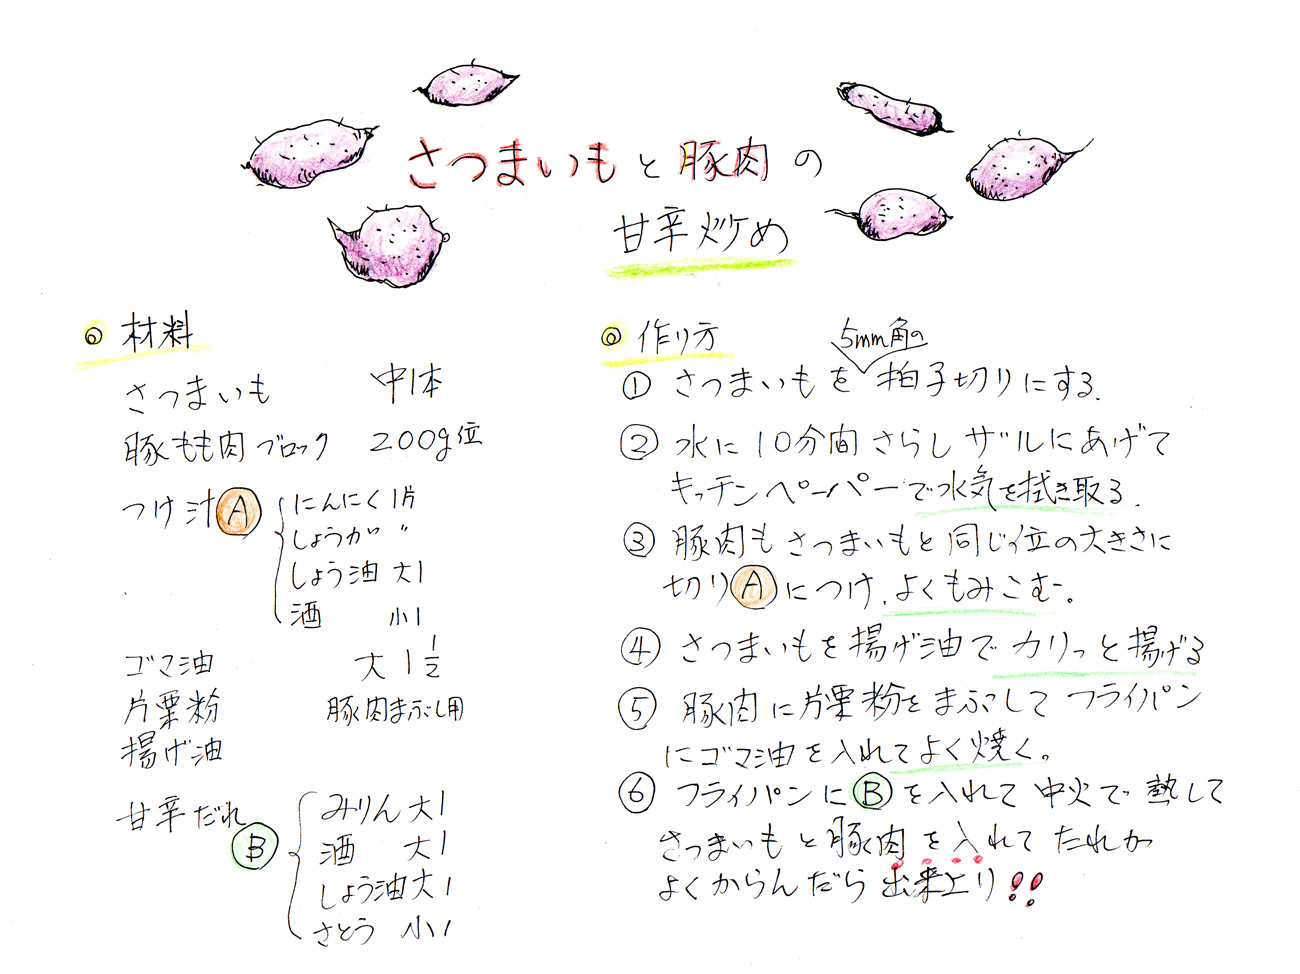 さつまいもと豚肉の
甘辛炒め
◎ 材料
さつまいも 中1本
豚もも肉ブロック 200g位
つけ汁 Ⓐ
にんにく 1片
しょうが 〃
しょう油 大1
酒 小1
ゴマ油 大1 1/2
片栗粉 豚肉まぶし用
揚げ油
甘辛だれ Ⓑ
みりん 大1
酒 大1
しょう油 大1
さとう 小1
◎ 作り方
① さつまいもを 5mm角の 拍子切りにする.
② 水に10分間さらしザルにあげて
キッチンペーパーで水気を拭き取る.
③ 豚肉もさつまいもと同じ位の大きさに
切りⒶにつけ、よくもみこむ。
④ さつまいもを揚げ油でカリっと揚げる
⑤ 豚肉に片栗粉をまぶしてフライパン
にゴマ油を入れてよく焼く。
⑥ フライパンにⒷを入れて中火で熱して
さつまいもと豚肉を入れてたれが
よくからんだら出来上り!!